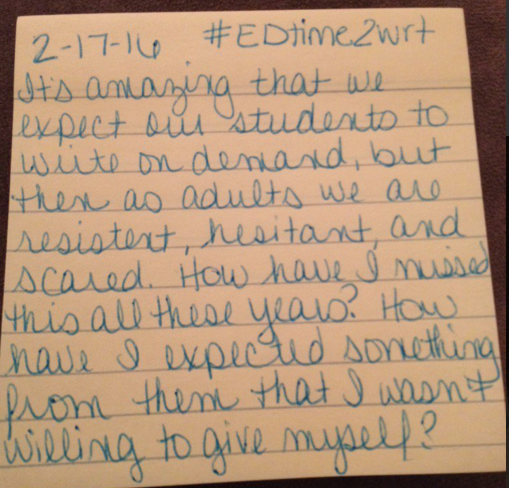 2-17-16 #EDtime2wrt
It's amazing that we
expect our students to
write on demand, but
then as adults we are
resistent, hesitant, and
scared. How have I missed
this all these years? How
have I expected something
from them that I wasn't
willing to give myself?